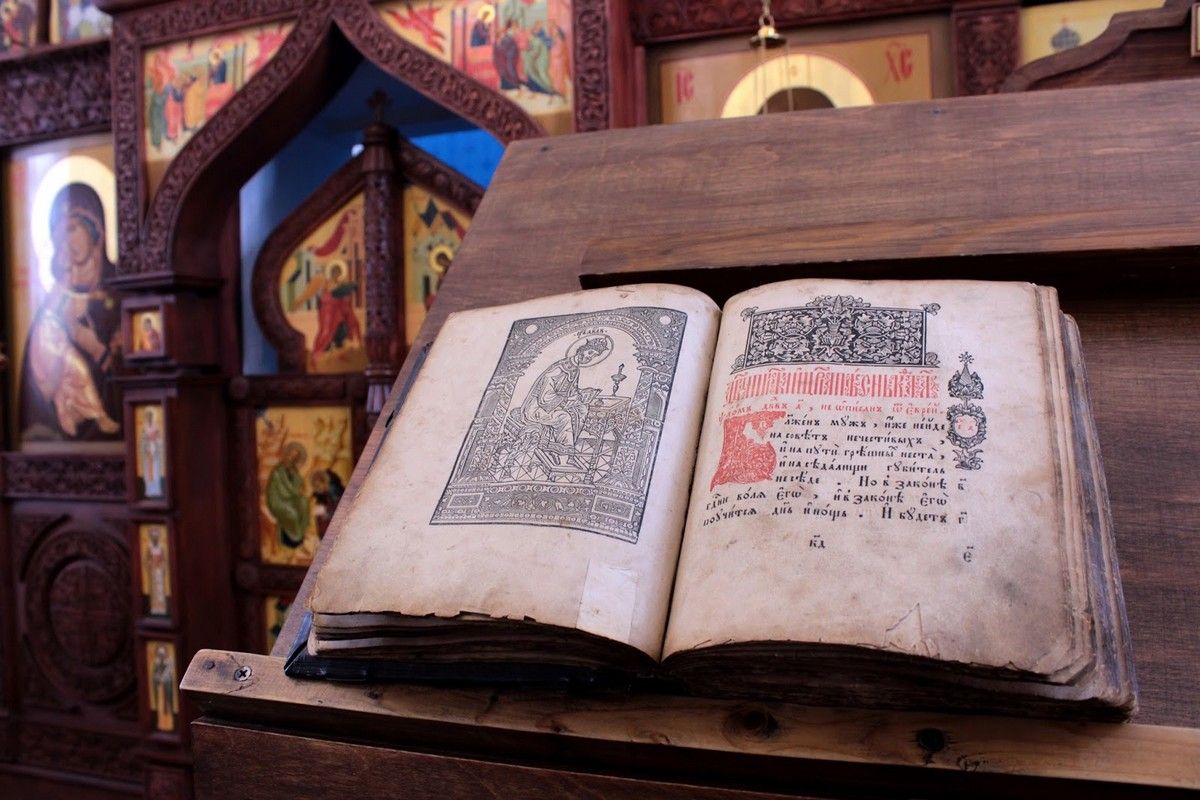 ІС
ХС
дв҃дъ
ѱало́мъ дв҃дꙋ а҃, не ѡ҆пи́санъ ѿ є҆врѣ́й
Бл҃же́нъ мꙋжъ, и҆́же не и҆́де
на совѣ́тъ нечести́выхъ,
и҆ на пꙋти̑ грѣ́шны́хъ не ста̀,
и҆ на сѣда́лищи гꙋби́тель
не сѣ́де. Но в зако́нѣ
гдⷭ҇ни во́лѧ є҆гѡ̀, и҆ в зако́нѣ є҆гѡ̀
поꙋчи́тсѧ дн҃ь и҆ но́щь. И бꙋ́детъ
в҃
г҃
к҃д
є҃